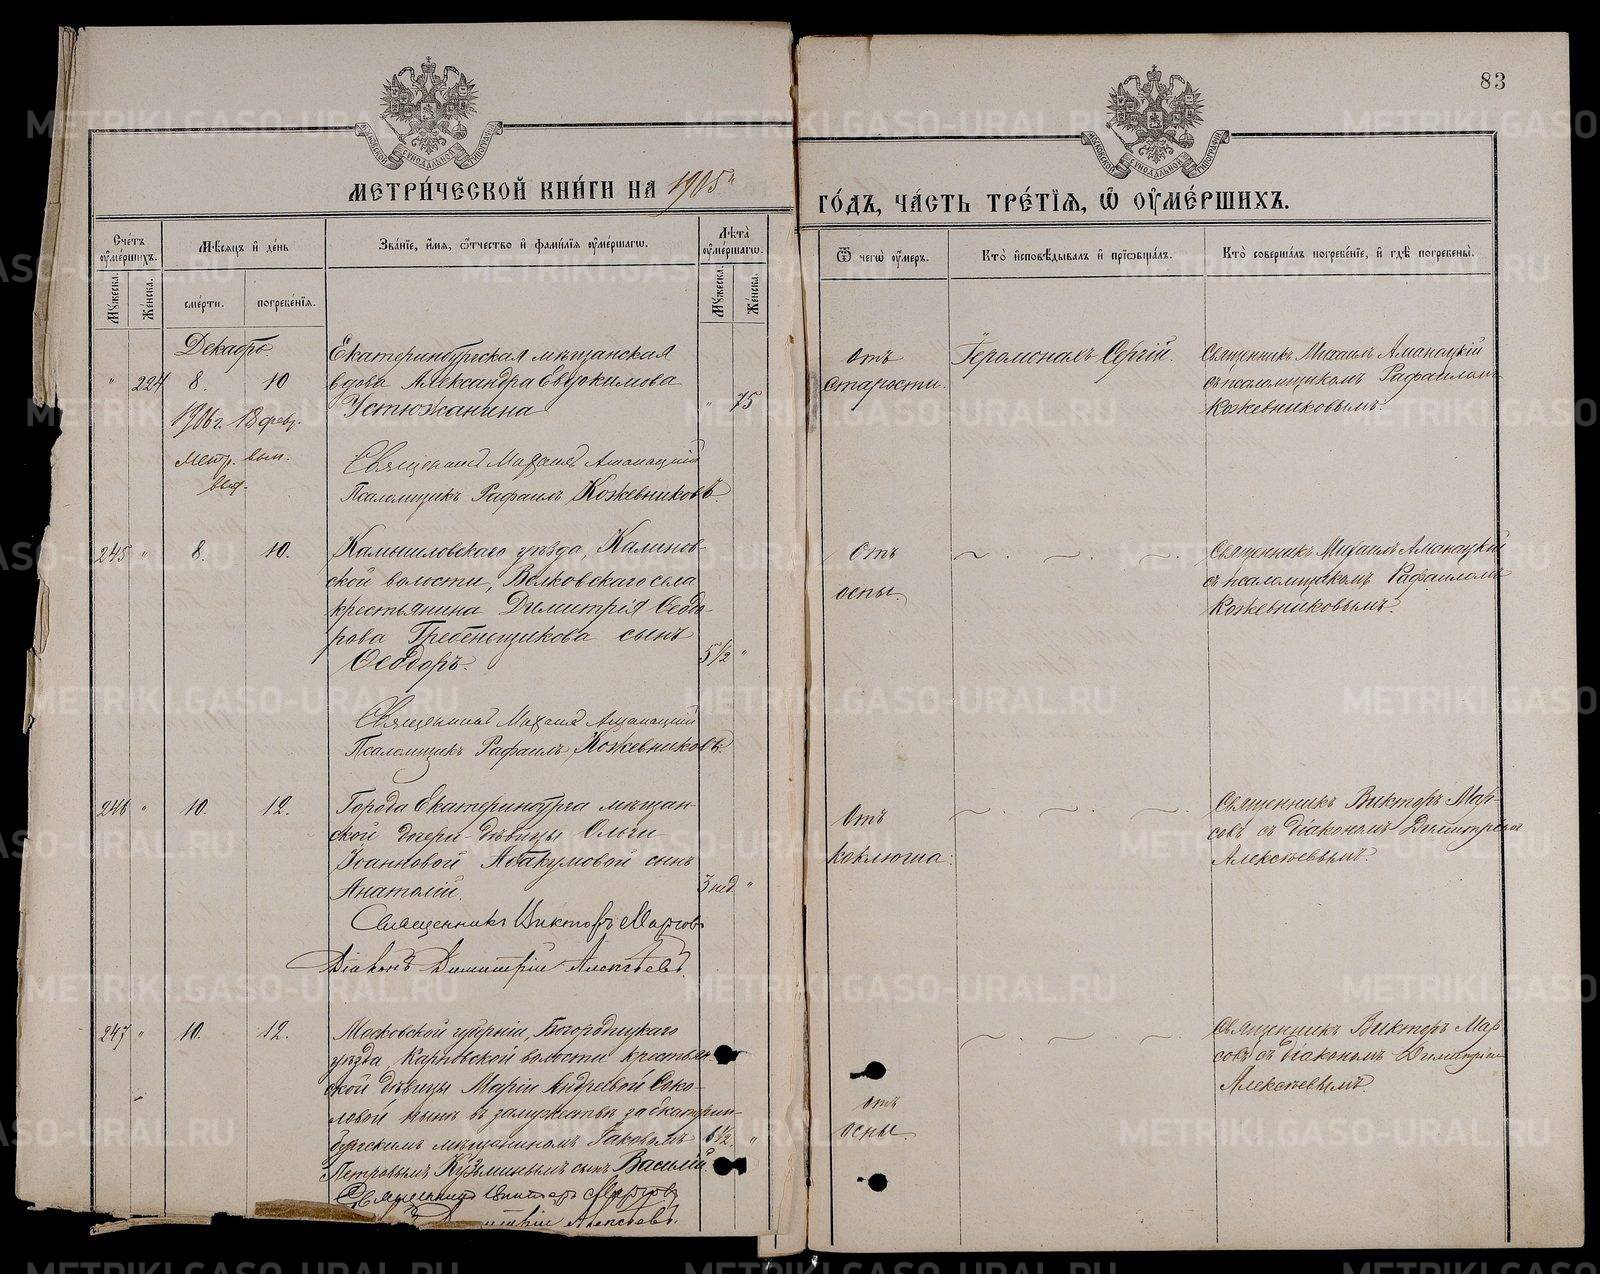 83
МОСКОВСКОЙ СУНОДАЛЬНОЙ ТИПОГРАФІИ
МОСКОВСКОЙ СУНОДАЛЬНОЙ ТИПОГРАФІИ
МЕТРИ́ЧЕСКОЙ КНИ́ГИ НА 1905
ГО́ДЪ, ЧА́СТЬ ТРЕ́ТІЯ, Ѽ ОУ҆МЕ́РШИХЪ.
Сче́тъ оу҆ме́ршихъ.
Мꙋжеска.
Же́нска.
Мѣсяцъ и҆ де́нь
сме́рти.
погребе́нїѧ.
Зва́нїе, и҆́мѧ, ѻ҆́тчество и҆ фами́лїѧ оу҆ме́ршагѡ.
Лѣ́та оу҆ме́ршагѡ.
Мꙋжеска.
Же́нска.
Ѿ чегѡ̀ оу҆́меръ.
Кто̀ и҆сповѣ́дывалъ и҆ прїѡбща́лъ.
Кто̀ соверша́лъ погребе́нїе, и҆ гдѣ̀ погребены̀.
Декабрь
" 224 8. 10
Екатеринбургская мѣщанская
вдова Александра Евдокимова
Устюжанина " 75
1906 г. 18 февр.
метр. вып.
выд.
Священникъ Михаилъ Аманацкій
Псаломщикъ Рафаилъ Кожевниковъ.
отъ
старости.
Іеромонахъ Сергій.
Священникъ Михаилъ Аманацкій
съ псаломщикомъ Рафаиломъ
Кожевниковымъ.
245 " 8. 10.
Камышловскаго уѣзда, Калинов-
ской волости, Волковскаго села
крестьянина Димитрія Ѳеодо-
рова Гребенщикова сынъ
Ѳеодоръ. 5 1/2 "
Священникъ Михаилъ Аманацкій
Псаломщикъ Рафаилъ Кожевниковъ.
отъ
оспы.
Священникъ Михаилъ Аманацкій
съ псаломщикомъ Рафаиломъ
Кожевниковымъ.
246 " 10. 12.
Города Екатеринбурга мѣщан-
ской дочери-дѣвицы Ольги
Іоанновой Абакумовой сынъ
Анатолій. 3 нед. "
Священникъ Викторъ Марсов
Діаконъ Димитрій Алексѣевъ.
отъ
коклюша.
Священникъ Викторъ Мар-
совъ съ діакономъ Димитріемъ
Алексѣевымъ.
247 " 10. 12.
Московской губерніи, Богородицкаго
уѣзда, Карповской волости крестьян-
ской дѣвицы Маріи Андреевой Соко-
ловой нынѣ въ замужествѣ за екатерин-
бургскимъ мѣщаниномъ Іаковомъ 6 1/2. "
Петровымъ Кузьминымъ сынъ Василій.
Священникъ Викторъ Марсовъ
Димитрій Алексѣевъ.
отъ
оспы.
Священникъ Викторъ Мар-
совъ съ діакономъ Димитріем
Алексѣевымъ.
METRIKI.GASO-URAL.RU